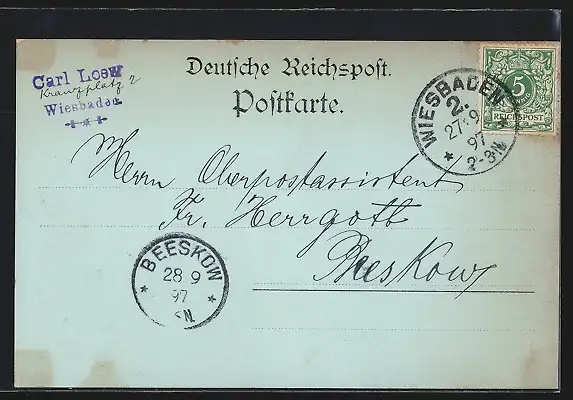 Carl Loew
Kranzplatz 2
Wiesbaden
Deutsche Reichspost.
Postkarte.
5
REICHSPOST
WIESBADEN
2.
27 9
97
2-3N
Herrn Oberpostassistent
Fr. Herrgott
Beeskow
BEESKOW
28 9
97
N.